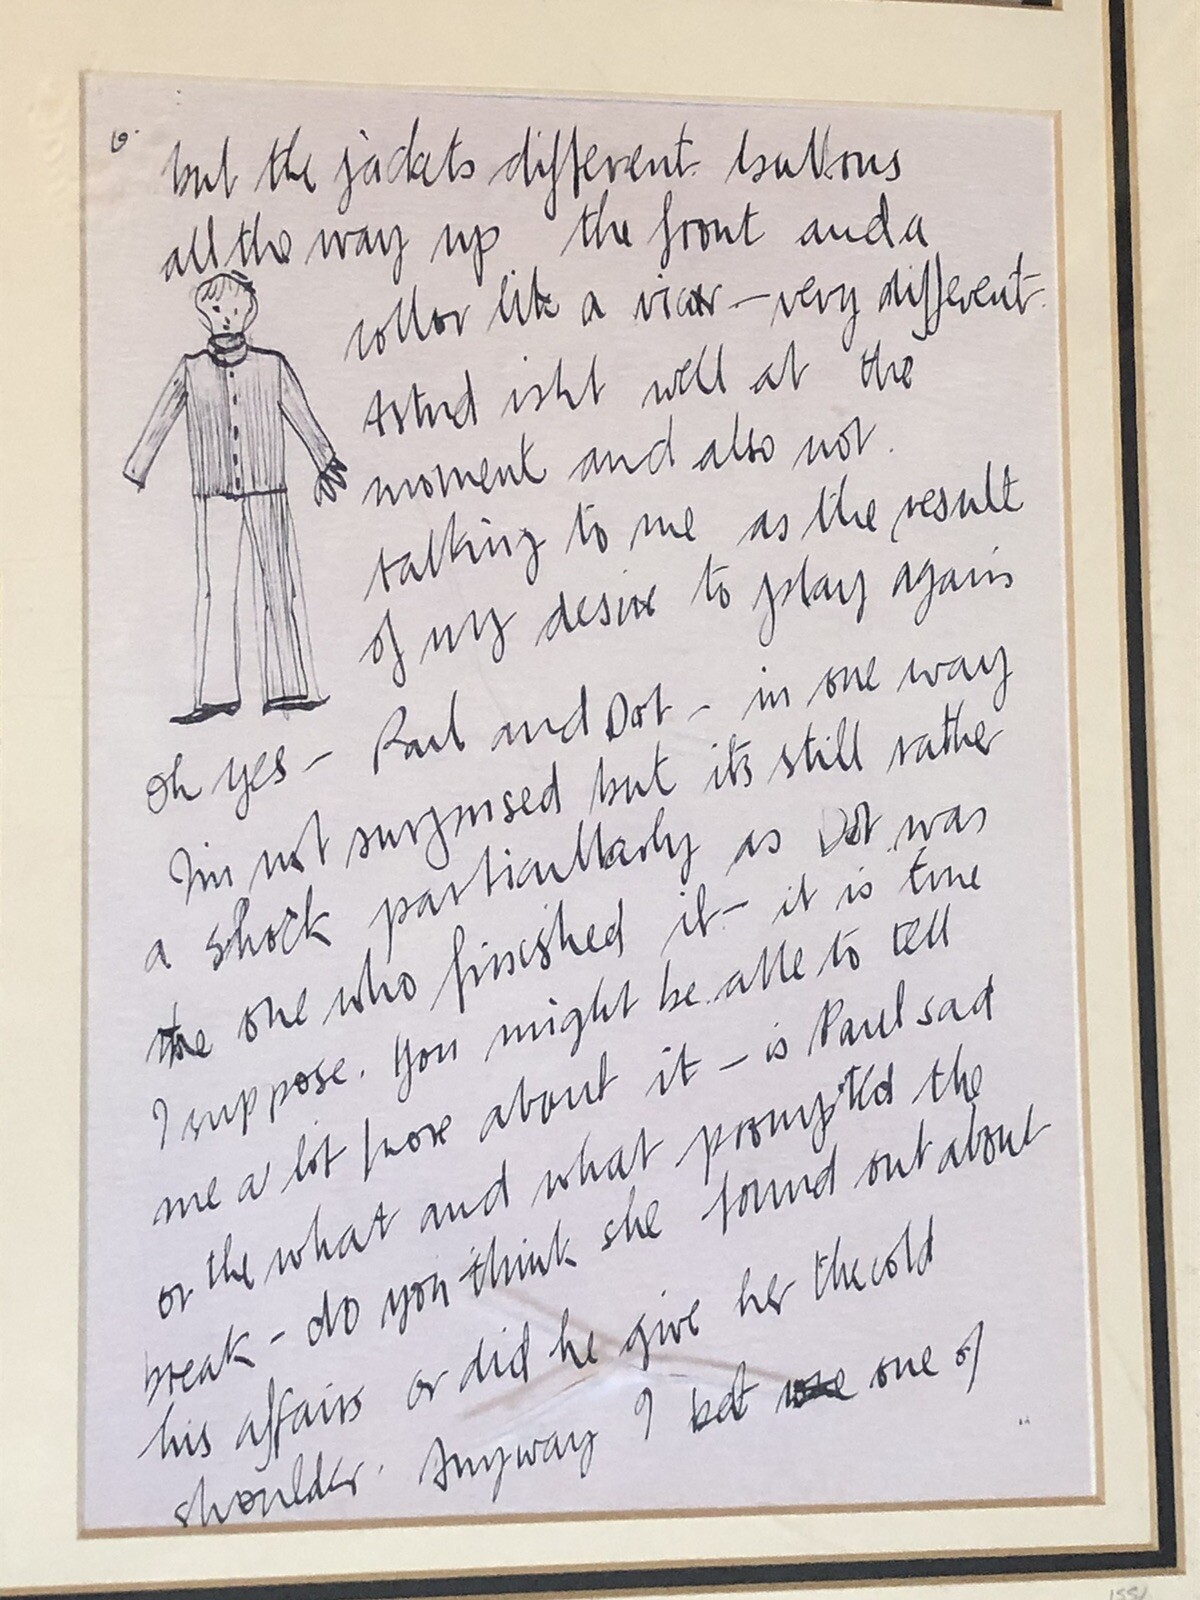 6.
but the jackets different. buttons
all the way up the front and a
collor like a vicar – very different.
Astrid isnt well at the
moment and also not.
talking to me as the result
of my desire to play again
oh yes – Paul and Dot – in one way
Im not surprised but its still rather
a shock particullarly as Dot was
the one who finished it – it is true
I suppose. You might be able to tell
me a lot more about it – is Paul sad
or the what and what prompted the
break – do you think she found out about
his affairs or did he give her the cold
shoulder. Anyway I bet one of